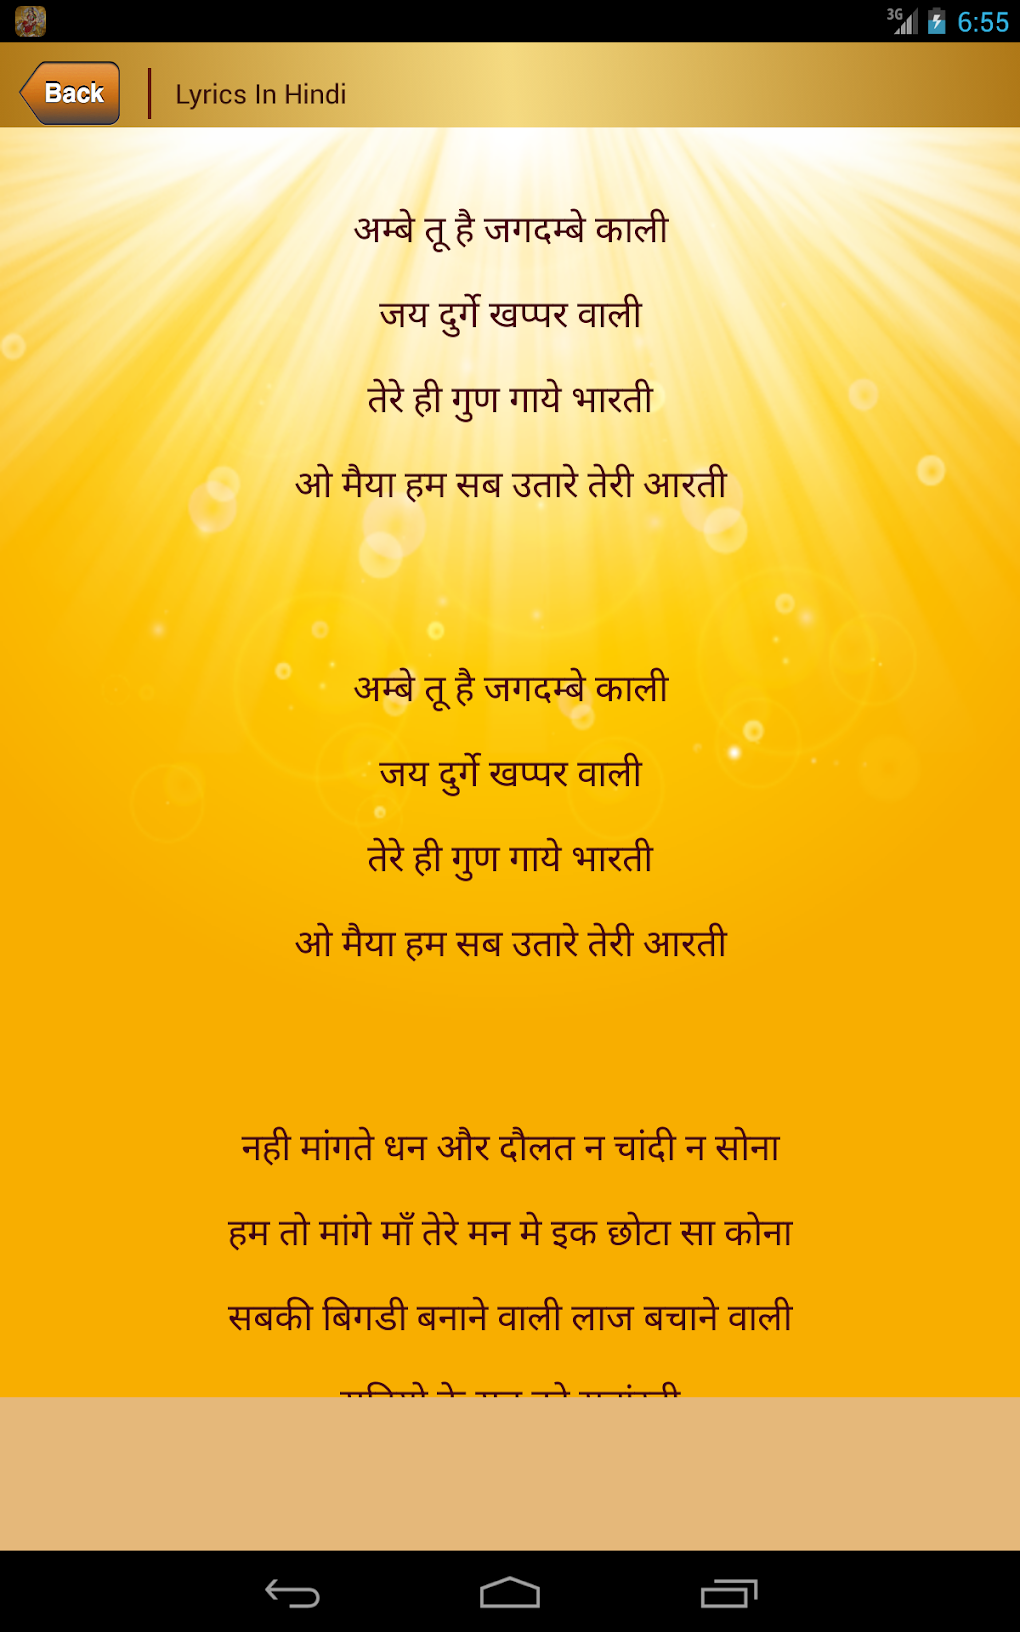 3G 6:55
Back Lyrics In Hindi
अम्बे तू है जगदम्बे काली
जय दुर्गे खप्पर वाली
तेरे ही गुण गाये भारती
ओ मैया हम सब उतारे तेरी आरती
अम्बे तू है जगदम्बे काली
जय दुर्गे खप्पर वाली
तेरे ही गुण गाये भारती
ओ मैया हम सब उतारे तेरी आरती
नही मांगते धन और दौलत न चांदी न सोना
हम तो मांगे माँ तेरे मन मे इक छोटा सा कोना
सबकी बिगडी बनाने वाली लाज बचाने वाली